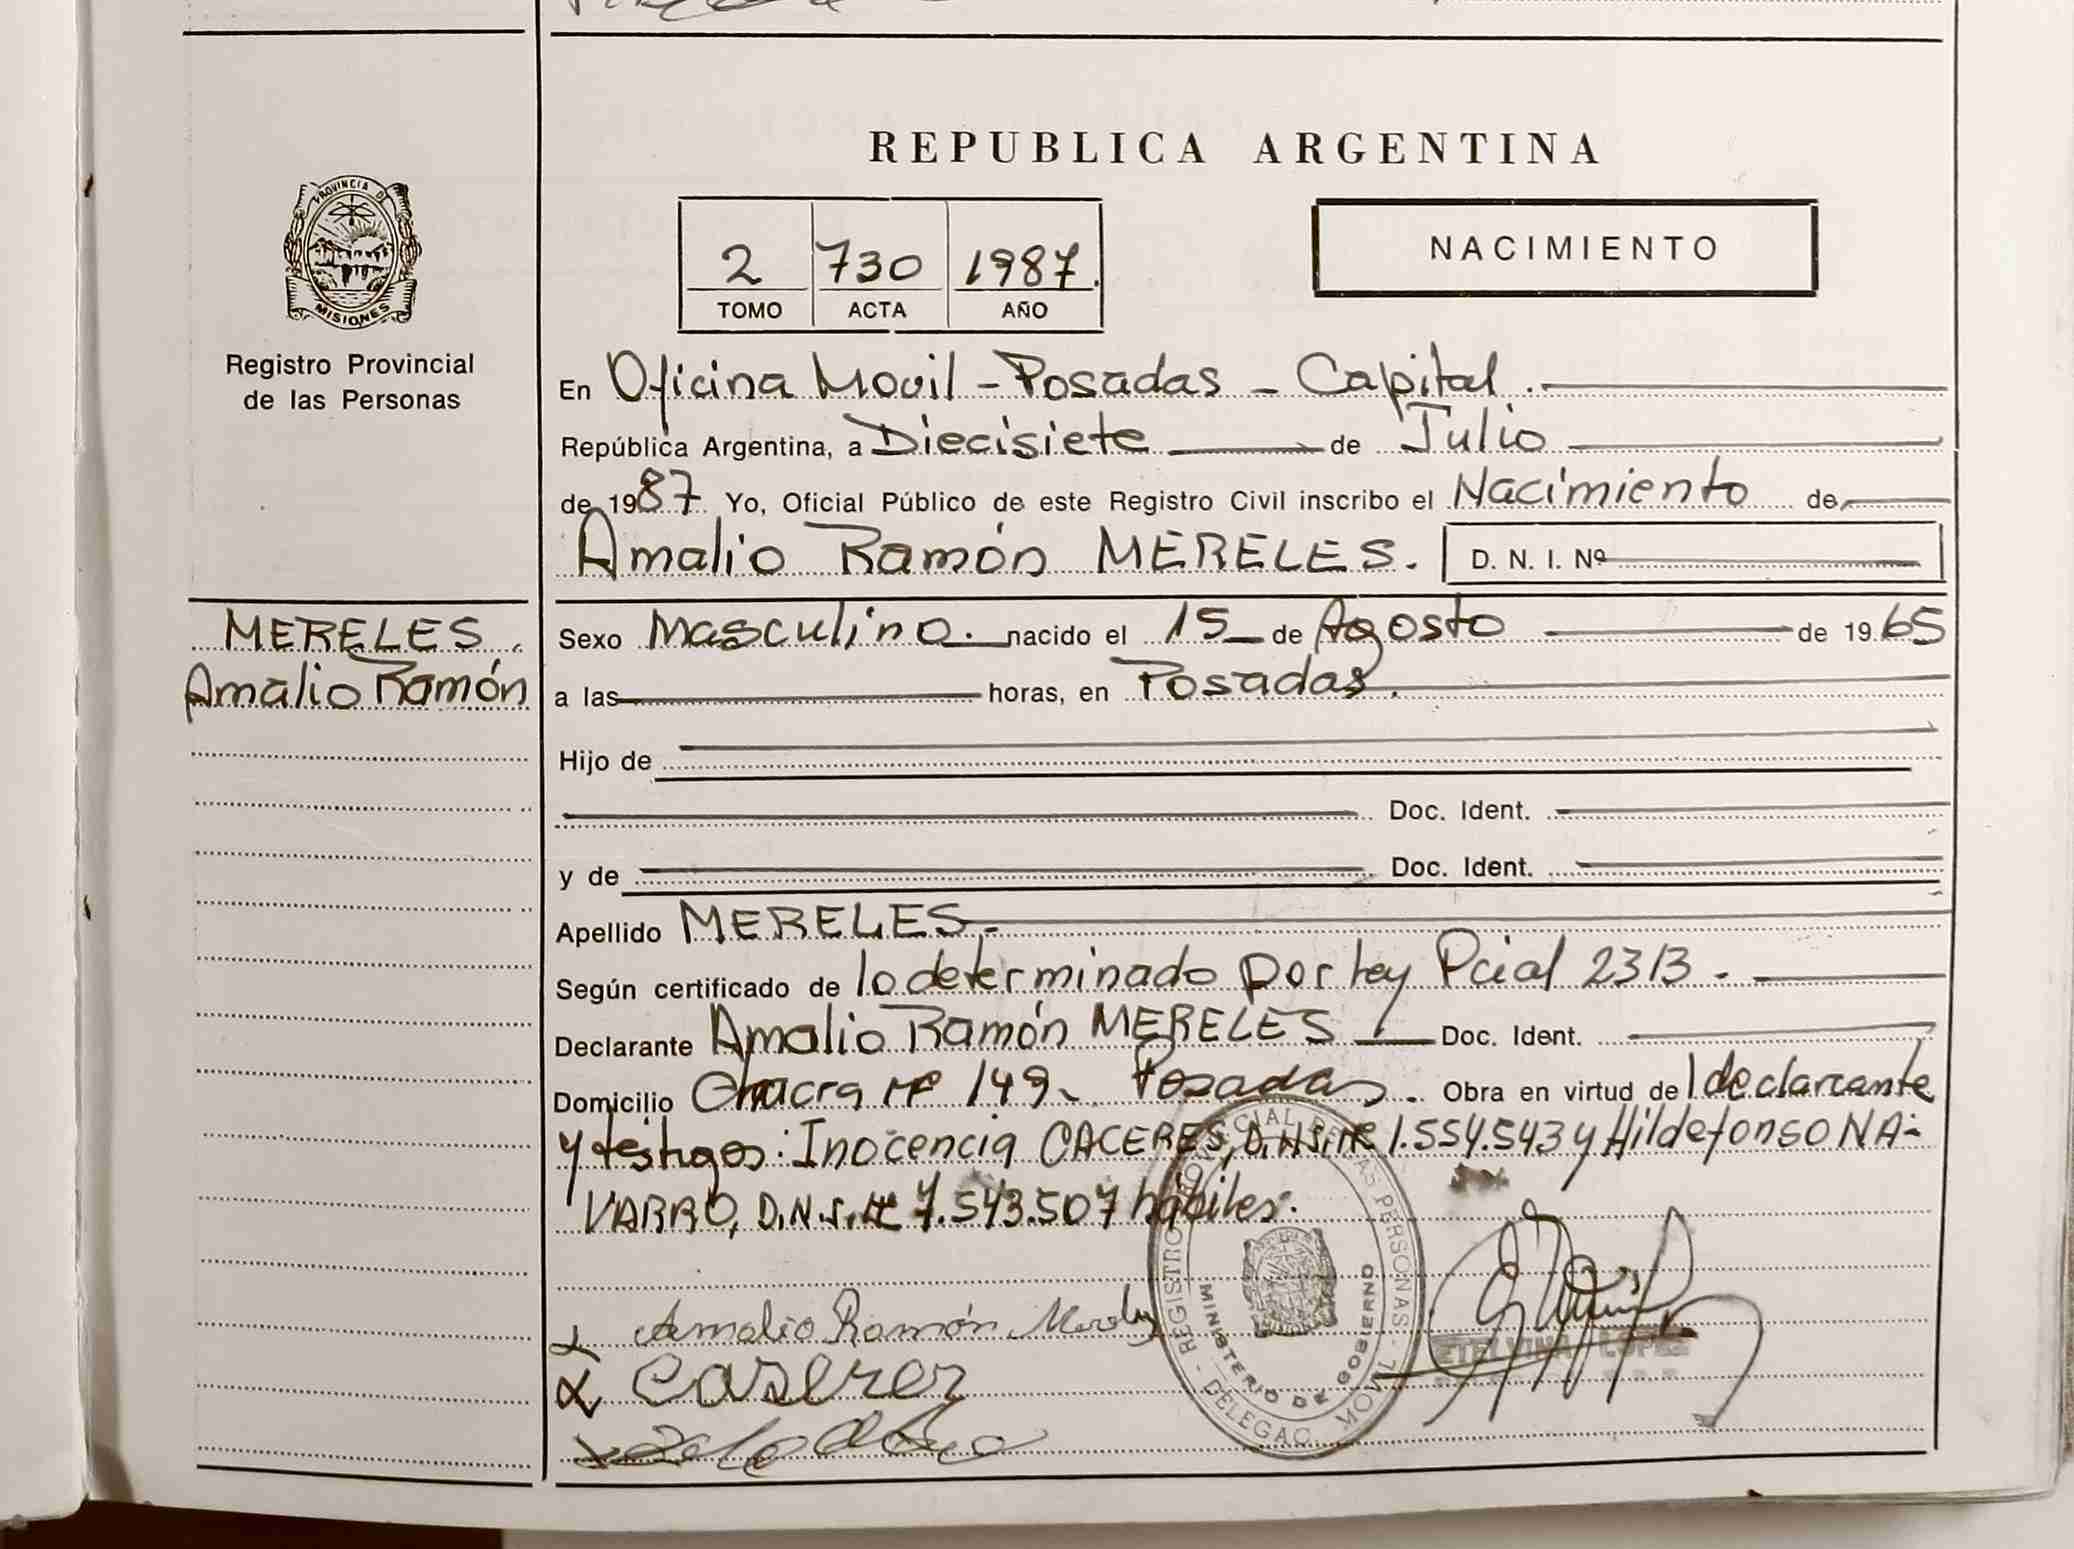 REPUBLICA ARGENTINA
PROVINCIA D
MISIONES
Registro Provincial
de las Personas
2 730 1987.
TOMO ACTA AÑO
NACIMIENTO
En Oficina Movil - Posadas - Capital.
República Argentina, a Diecisiete de Julio
de 1987 Yo, Oficial Público de este Registro Civil inscribo el Nacimiento de
Amalio Ramón MERELES. D. N. I. Nº
MERELES.
Amalio Ramón
Sexo Masculino. nacido el 15 de Agosto de 1965
a las horas, en Posadas.
Hijo de
Doc. Ident.
y de Doc. Ident.
Apellido MERELES.-
Según certificado de lo determinado por ley Pcial 2313.-
Declarante Amalio Ramón MERELES Doc. Ident.
Domicilio Chacra Nº 149. Posadas. Obra en virtud de l declarante
y testigos: Inocencia CACERES, D.N.I. Nº 1.554.543 y Hildefonso NA-
VARRO, D.N.I. Nº 7.543.507 hábiles.
Amalio Ramón
Caserer
REGISTRO CIAL DE LAS PERSONAS - DELEGAC. MOVIL
MINISTERIO DE GOBIERNO
ETELVINA LOPEZ